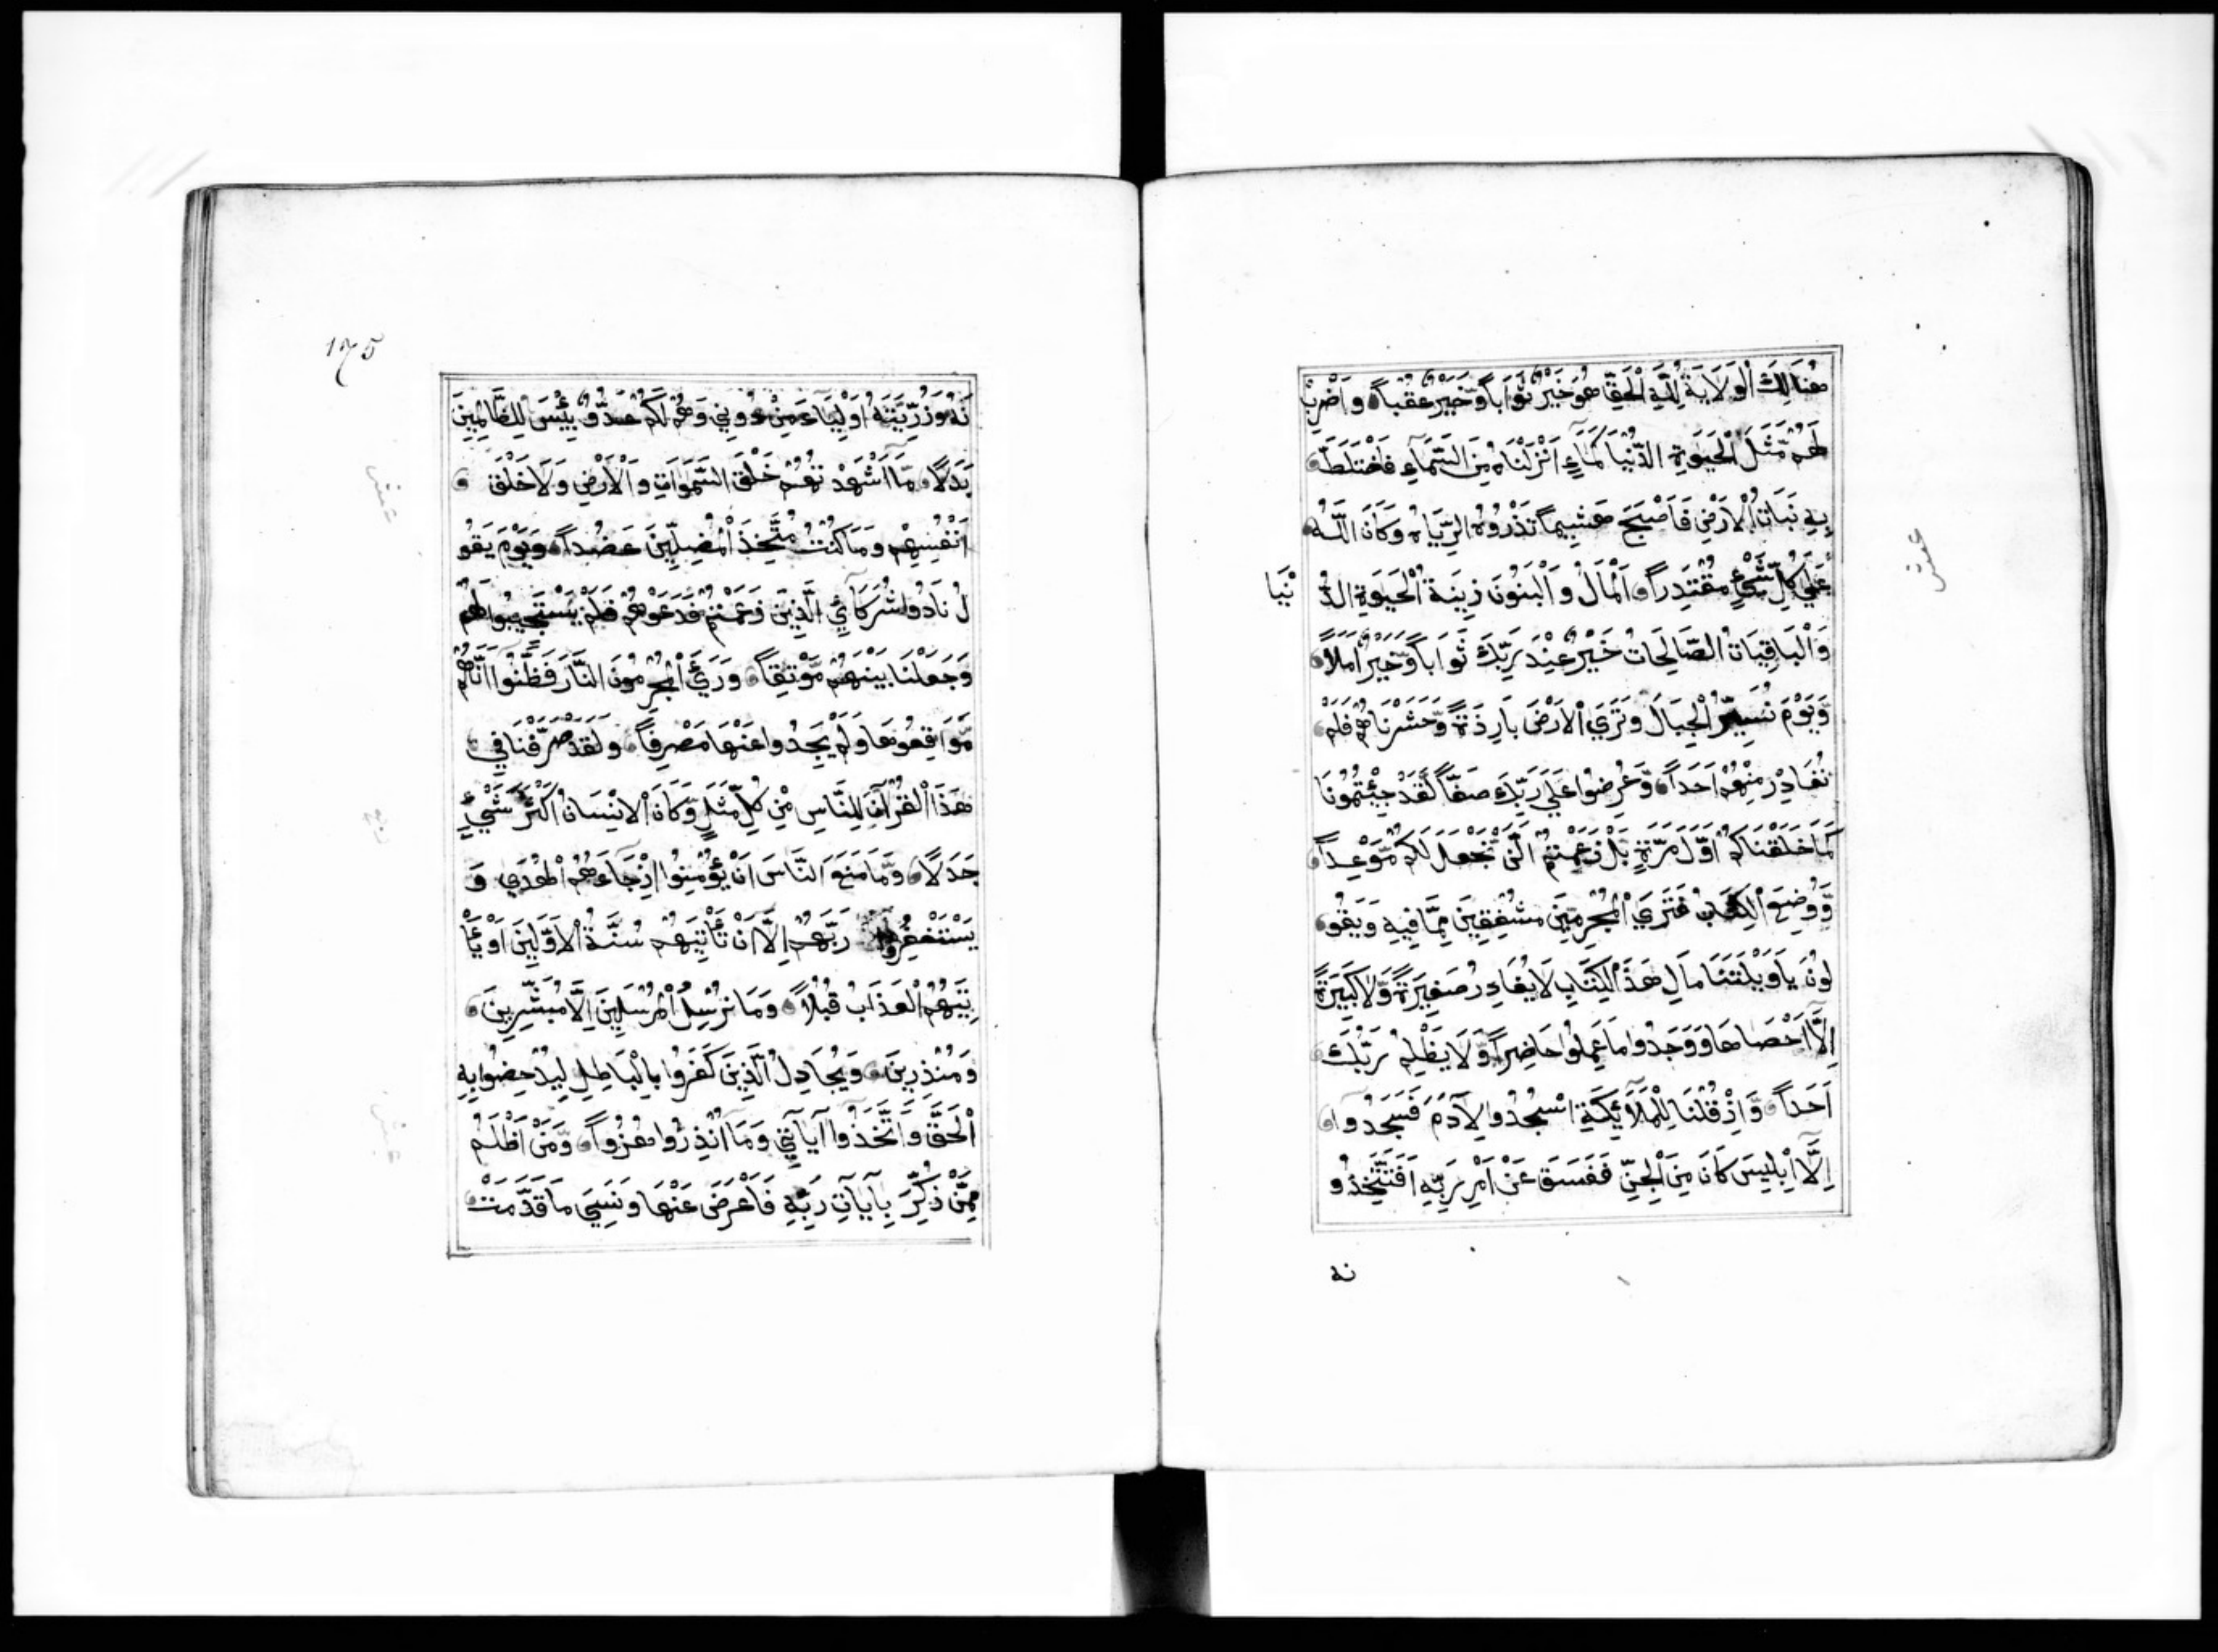 هُنَالِكَ الْوَلَايَةُ لِلّٰهِ الْحَقِّ هُوَ خَيْرٌ ثَوَاباً وَّخَيْرٌ عُقْباً وَاضْرِبْ
لَهُمْ مَّثَلَ الْحَيَوةِ الدُّنْيَا كَمَآءٍ اَنْزَلْنَاهُ مِنَ السَّمَآءِ فَاخْتَلَطَ
بِهِ نَبَاتُ الْاَرْضِ فَاَصْبَحَ هَشِيماً تَذْرُوهُ الرِّيَاحُ وَكَانَ اللّٰهُ
عَلَي كُلِّ شَيْءٍ مُقْتَدِراً اَلْمَالُ وَالْبَنُونَ زِينَةُ الْحَيَوةِ الدُّ نْيَا
وَالْبَاقِيَاتُ الصَّالِحَاتُ خَيْرٌ عِنْدَ رَبِّكَ ثَوَاباً وَّخَيْرٌ اَمَلاً
وَيَوْمَ نُسَيِّرُ الْجِبَالَ وَتَرَي الْاَرْضَ بَارِذَةً وَّحَشَرْنَاهُمْ فَلَمْ
نُغَادِرْ مِنْهُمْ اَحَداً وَّعُرِضُوا عَلَي رَبِّكَ صَفّاً لَّقَدْ جِئْتُمُونَا
كَمَا خَلَقْنَاكُمْ اَوَّلَ مَرَّةٍ بَلْ زَعَمْتُمْ اَلَّنْ نَّجْعَلَ لَكُمْ مَّوْعِداً
وَّوُضِعَ الْكِتَابُ فَتَرَي الْمُجْرِمِينَ مُشْفِقِينَ مِمَّا فِيهِ وَيَقُو
لُونَ يَاوَيْلَتَنَا مَالِ هٰذَا الْكِتَابِ لَا يُغَادِرُ صَغِيرَةً وَّلَا كَبِيرَةً
اِلَّا اَحْصَاهَا وَوَجَدُوا مَا عَمِلُوا حَاضِراً وَّلَا يَظْلِمُ رَبُّكَ
اَحَداً وَّاِذْ قُلْنَا لِلْمَلآَئِكَةِ اسْجُدُوا لِآدَمَ فَسَجَدُوا
اِلَّا اِبْلِيسَ كَانَ مِنَ الْجِنِّ فَفَسَقَ عَنْ اَمْرِ رَبِّهِ اَفَتَتَّخِذُو
نه
عشر
175
نَهُ وَذُرِّيَّتَهُ اَوْلِيَآءَ مِنْ دُونِي وَهُمْ لَكُمْ عَدُوٌّ بِئْسَ لِلظَّالِمِينَ
بَدَلاً مَا اَشْهَدْ تُهُمْ خَلْقَ السَّمٰوَاتِ وَالْاَرْضِ وَلَا خَلْقَ
اَنْفُسِهِمْ وَمَا كُنْتُ مُتَّخِذَ الْمُضِلِّينَ عَضُداً وَيَوْمَ يَقُو
لُ نَادُوا شُرَكَآئِيَ الَّذِينَ زَعَمْتُمْ فَدَعَوْهُمْ فَلَمْ يَسْتَجِيبُوا لَهُمْ
وَجَعَلْنَا بَيْنَهُمْ مَّوْبِقاً وَرَءَي الْمُجْرِمُونَ النَّارَ فَظَنُّوا اَنَّهُمْ
مُّوَاقِعُوهَا وَلَمْ يَجِدُوا عَنْهَا مَصْرِفاً وَلَقَدْ صَرَّفْنَا فِي
هٰذَا الْقُرْآنِ لِلنَّاسِ مِنْ كُلِّ مَثَلٍ وَّكَانَ الْاِنْسَانُ اَكْثَرَ شَيْءٍ
جَدَلاً وَّمَا مَنَعَ النَّاسَ اَنْ يُؤْمِنُوا اِذْ جَآءَهُمُ الْهُدَي وَ
يَسْتَغْفِرُوا رَبَّهُمْ اِلَّا اَنْ تَأْتِيَهُمْ سُنَّةُ الْاَوَّلِينَ اَوْ يَأْ
تِيَهُمُ الْعَذَابُ قُبُلاً وَمَا نُرْسِلُ الْمُرْسَلِينَ اِلَّا مُبَشِّرِينَ
وَمُنْذِرِينَ وَيُجَادِلُ الَّذِينَ كَفَرُوا بِالْبَاطِلِ لِيُدْحِضُوا بِهِ
الْحَقَّ وَاتَّخَذُوا آيَاتِي وَمَا اُنْذِرُوا هُزُواً وَمَنْ اَظْلَمُ
مِمَّنْ ذُكِّرَ بِآيَآتِ رَبِّهِ فَاَعْرَضَ عَنْهَا وَنَسِيَ مَا قَدَّمَتْ